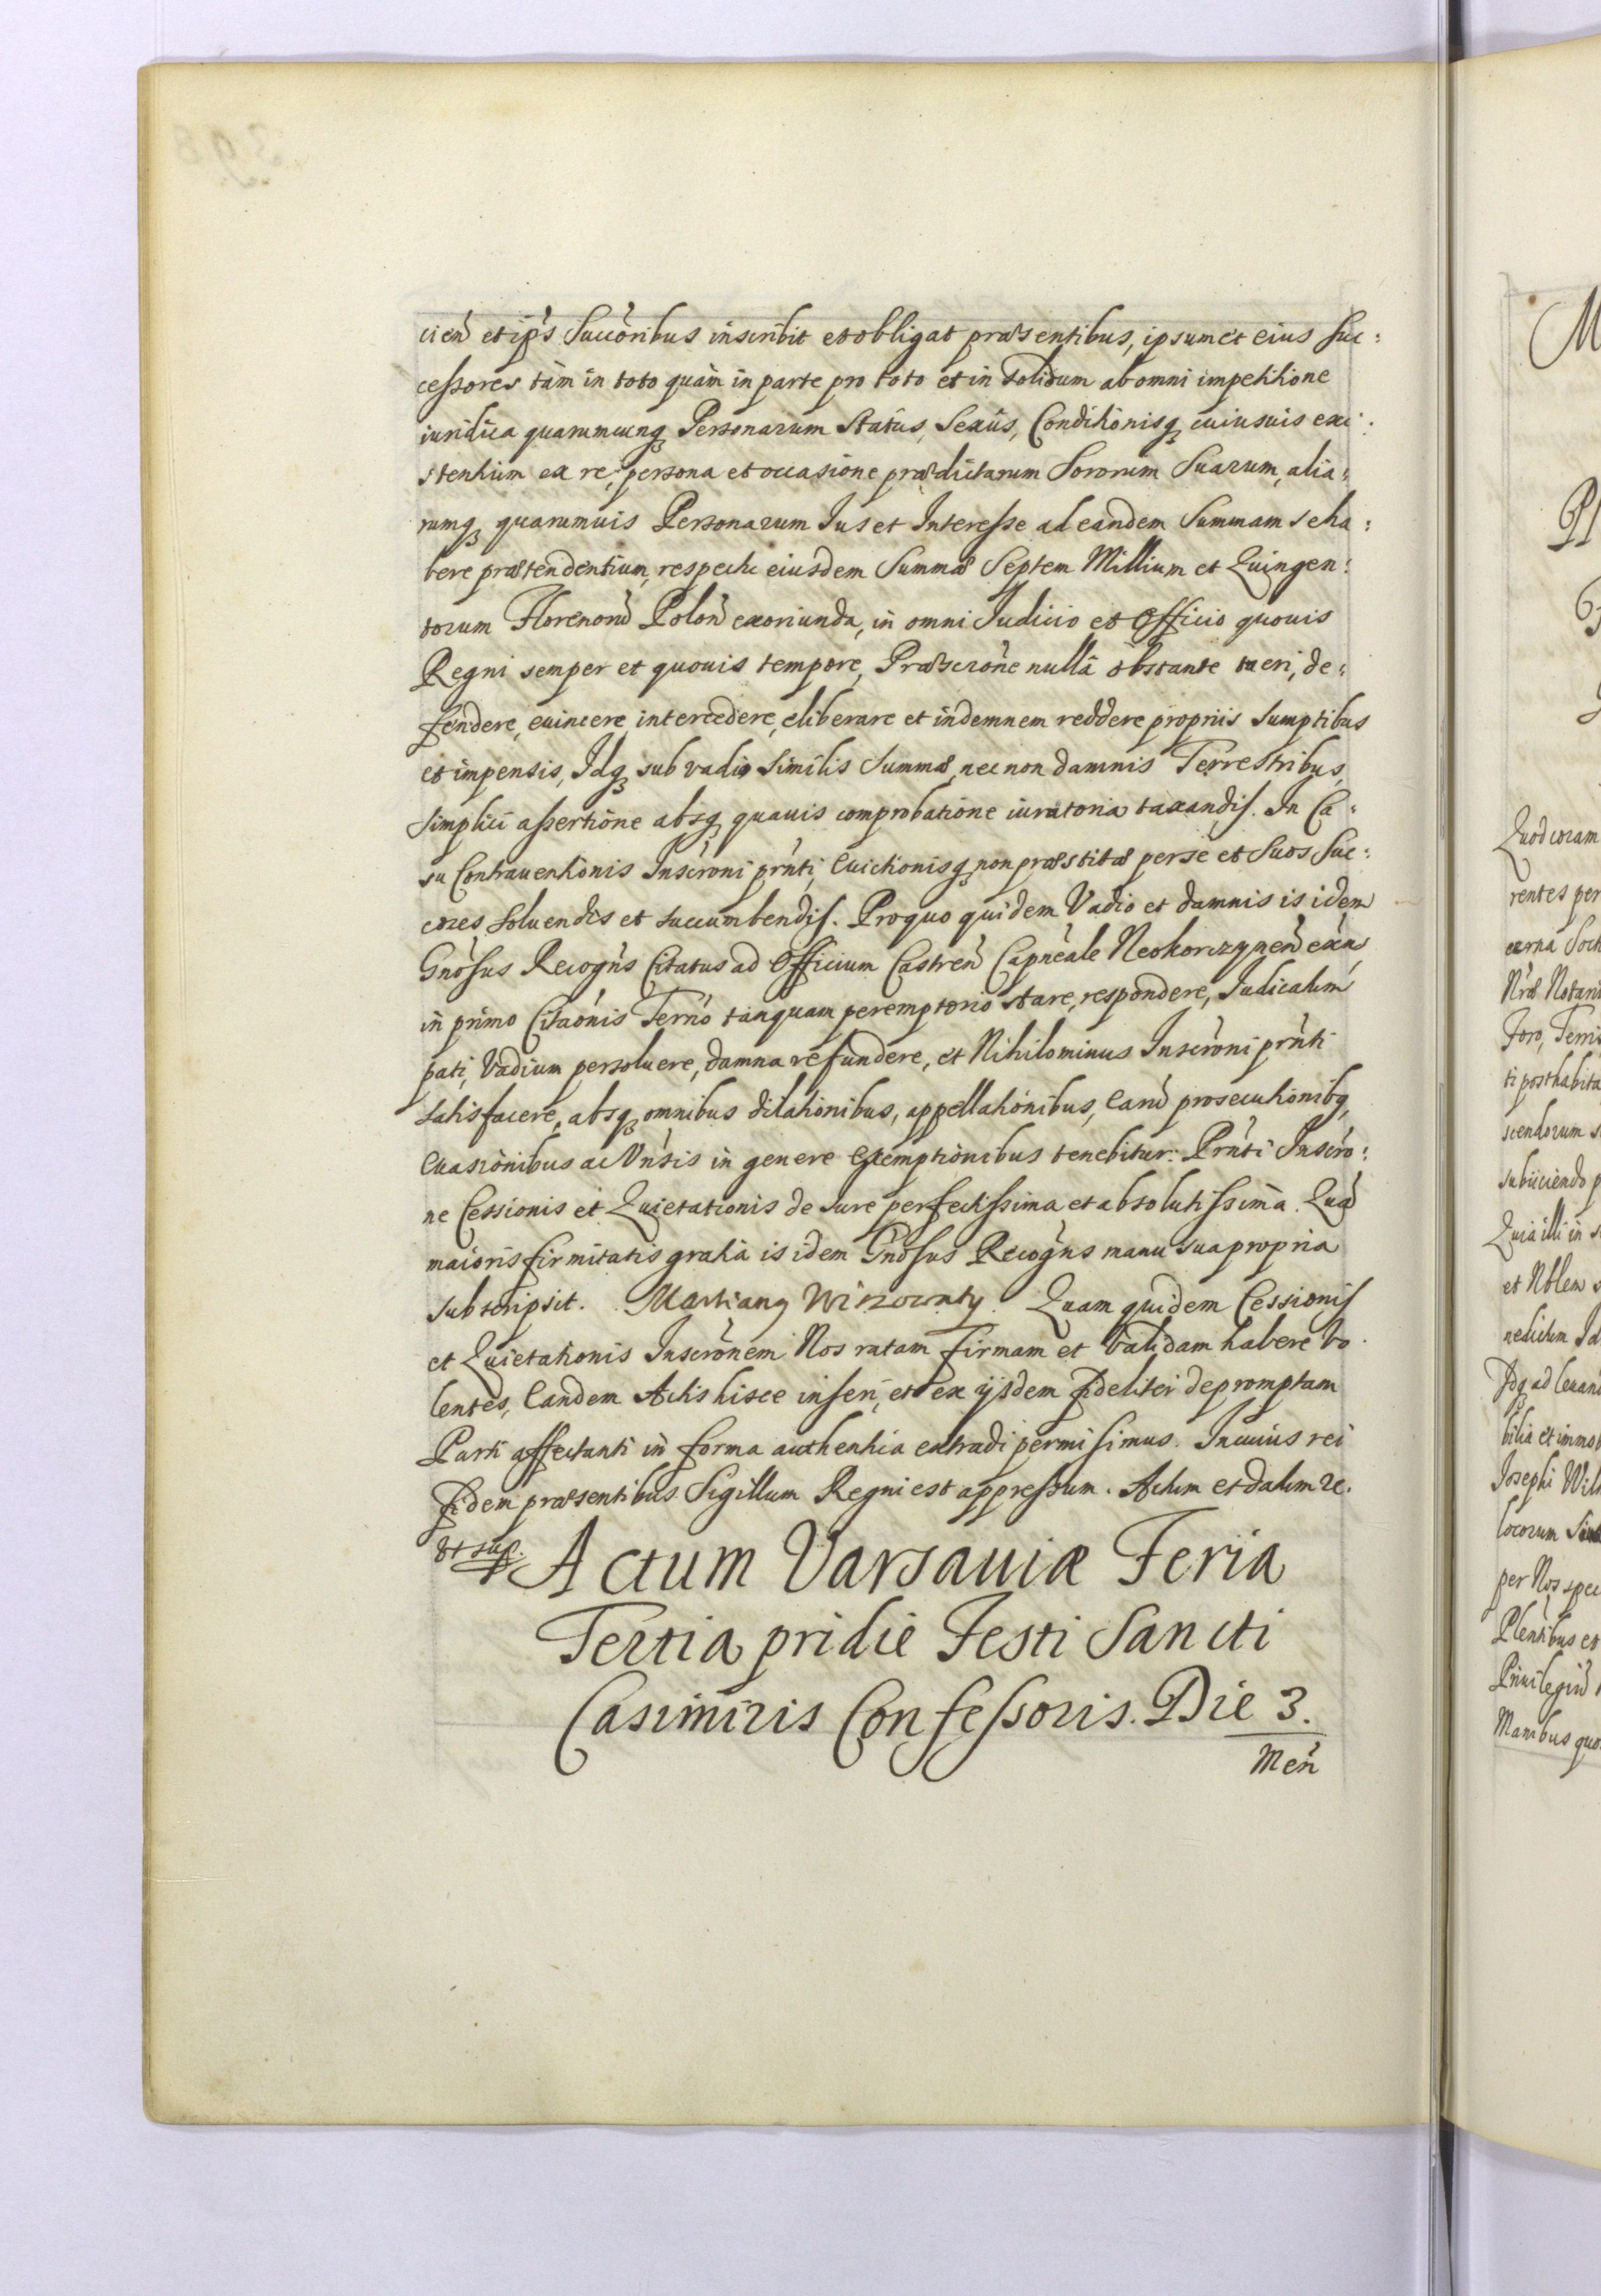 cień et ip̃s Succõribus inscribit et obligat præsentibus, ipsum et eius Suc:
cessores tàm in toto quàm in parte pro toto et in solidum ab omni impetitione
iuridica quarumcunq Personarum Status, Sexûs, Conditionisq cuiusuis exi:
stentium ex re, persona et occasione prædictarum Sororum Suarum, alia:
rumq quarumuis Personarum Ius et Interesse ad eandem Summam se ha:
bere prætendentium, respectu eiusdem Summæ Septem Millium et Quingen:
torum Florenorũ Polon̄ exoriunda, in omni Judicio et Officio quouis
Regni semper et quouis tempore, Præscrõne nullâ obstante tueri, de:
fendere, euincere, intercedere, eliberare et indemnem reddere propriis sumptibus
et impensis, Idq sub vadio similis Summæ, nec non damnis Terrestribus,
simplici assertione absq quauis comprobatione iuratoria taxandis. In Ca:
su Contrauentionis Inscrõni prñti, Euictionisq non præstitæ per se et Suos Suc:
cores soluendis et succumbendis. Pro quo quidem Vadio et damnis is idem
Gnõsus Recogñs Citatus ad Officium Castreñ Capñeale Neokorczyneñ
in primo Citãonis Terño tanquam peremptorio stare, respondere, Judicatum
pati, Vadium persoluere, damna refundere, et Nihilominus Inscrõni prñti
satisfacere, absq omnibus dilationibus, appellationibus, earũ prosecutionibq,
Euasionibus ac Vñsis in genere exemptionibus tenebitur: Prñti Inscrõ:
ne Cessionis et Quietationis de Iure perfectissima et absolutissima. Quã
maioris firmitatis gratia is idem Gnõsus Recogñs manu sua propria
subscripsit. Martiang Wirzownty. Quam quidem Cessionis
et Quietationis Inscrõnem Nos ratam firmam et Validam habere Vo
lentes, Eandem Actis hisce inseri, et ex ijsdem fideliter depromptam
Parti affectanti in forma authentica extradi permisimus. In cuius rei
fidem præsentibus Sigillum Regni est appressum. Actum et datum &c.
Vt sup.
Actum Varsauiæ Feria
Tertia pridie Festi Sancti
Casimiris Confessoris. Die 3.
Meñ